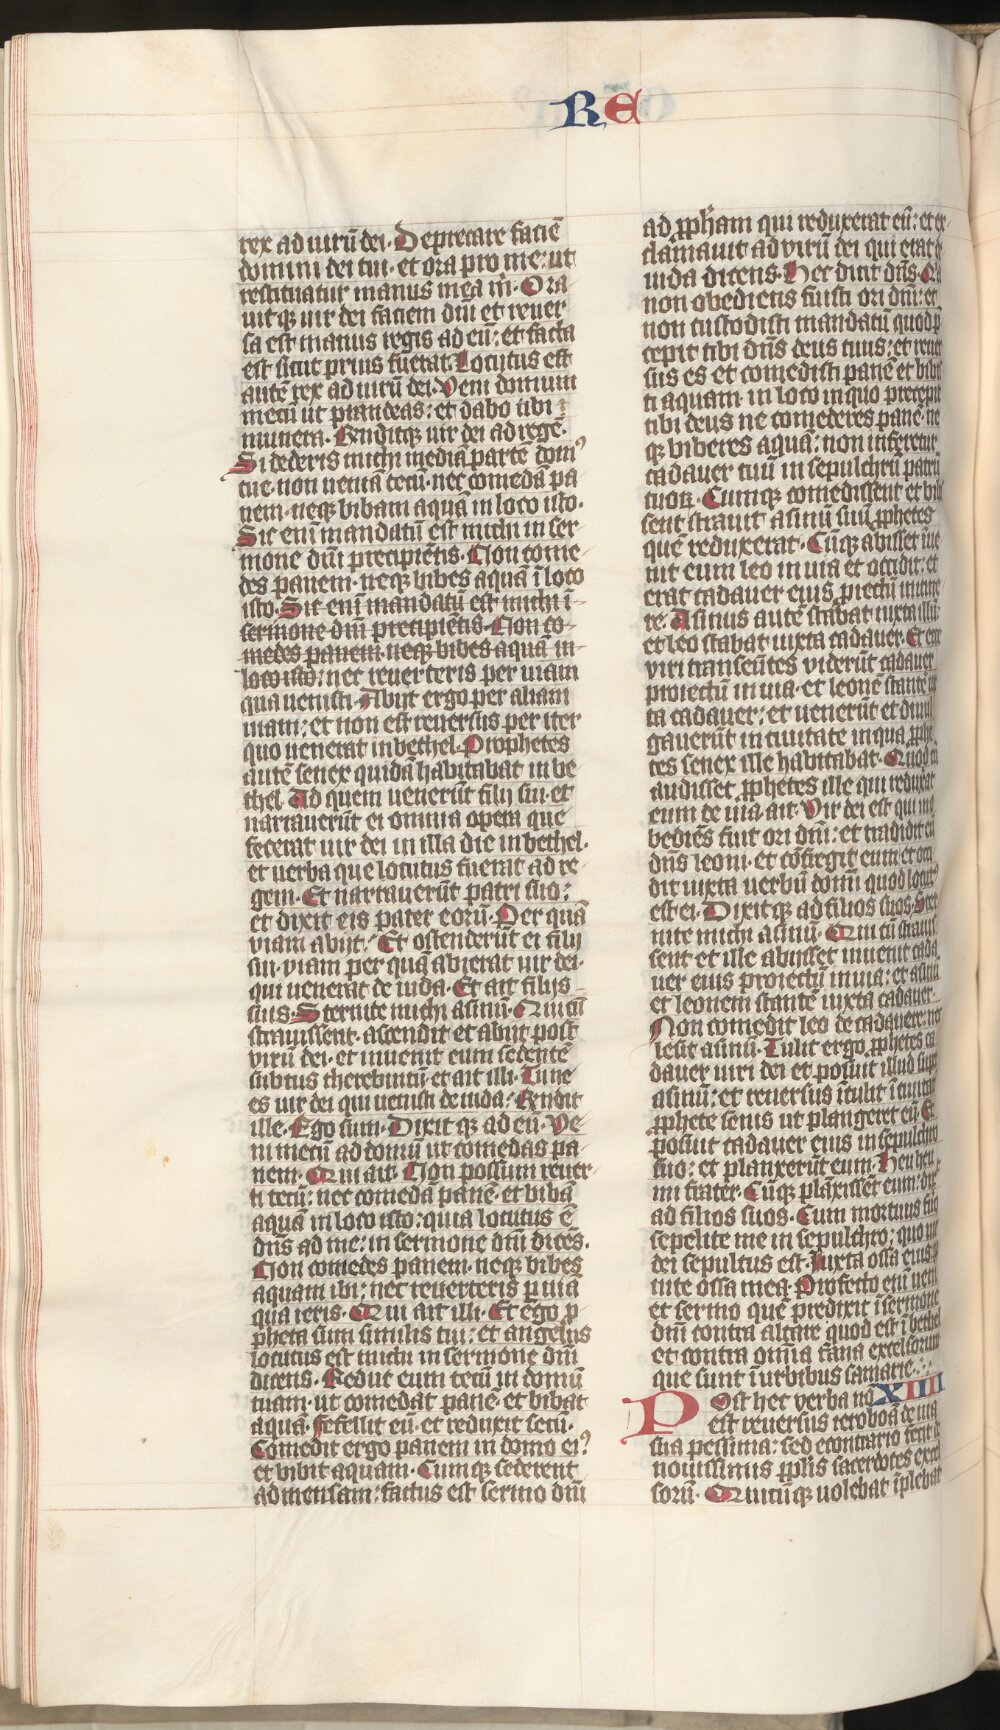 RE
rex ad uirū dei. Deprecare faciē
domini dei tui. et ora pro me: ut
restituatur manus mea m̄. Ora
uit qꝫ uir dei faciem dn̄i et reuer
sa est manus regis ad eū: et facta
est sicut prius fuerat. Locutus est
autē rex ad uirū dei. Veni domum
mecū ut prandeas: et dabo tibi
munera. Rn̄ditqꝫ uir dei ad regē.
Si dederis michi mediā partē domꝰ
tue. non ueniā tecū. nec comedā pa
nem. neqꝫ bibam aquā in loco isto.
Sic eni mandatū est michi in ser
mone dn̄i precipiētis. Non come
des panem. neqꝫ bibes aquā ī loco
isto. Sic eni mandatū est michi ī
sermone dn̄i precipiētis. Non co
medes panem. neqꝫ bibes aquā in
loco isto: nec reuerteris per uiam
qua uenisti. Abijt ergo per aliam
uiam: et non est reuersus per iter
quo uenerat in bethel. Prophetes
autē senex quidā habitabat in be
thel. Ad quem uenerūt filij sui. et
narrauerūt ei omnia opera que
fecerat uir dei in illa die in bethel.
et uerba que locutus fuerat ad re
gem. Et narrauerūt patri suo:
et dixit eis pater eorū. Per quā
viam abijt. Et ostenderūt ei filij
sui. viam per quā abierat uir dei.
qui uenerat de iuda. Et ait filijs
suis. Sternite michi asinū. Qui cū
strauissent. ascendit et abijt post
virū dei. et inuenit eum sedentē
subtus therebintū. et ait illi. Tu ne
es uir dei qui uenisti de iuda: Rn̄dit
ille. Ego sum. Dixit qꝫ ad eū. Ve
ni mecū ad domū ut comedas pa
nem. Qui ait. Non possum reuer
ti tecū: nec comedā panē. et bibā
aquā in loco isto: quia locutus ē
dn̄s ad me: in sermone dn̄i dicēs.
Non comedes panem. neqꝫ bibes
aquam ibi: nec reuerteris ꝑ uiā
qua ieris. Qui ait illi. Et ego ꝓ
pheta sum similis tui: et angelus
locutus est michi in sermone dn̄i
dicens. Reduc eum tecū in domū
tuam. ut comedat panē. et bibat
aquā. Fefellit eū. et reduxit secū.
Comedit ergo panem in domo eiꝰ
et bibit aquam. Cumqꝫ sederent
ad mensam: factus est sermo dn̄i
ad ꝓpham qui reduxerat eū: et ex
clamauit ad virū dei qui erat de
iuda dicens. Hec dicit dn̄s. Qa
non obediens fuisti ori dn̄i: et
non custodisti mandatū quod p̄
cepit tibi dn̄s deus tuus: et reuer
sus es et comedisti panē et bibis
ti aquam. in loco in quo precepit
tibi deus ne comederes panē. ne
qꝫ biberes aquā: non inferetur
cadauer tuū in sepulchrū patrū
tuoꝝ. Cumqꝫ comedissent et bibis
sent strauit asinū suū ꝓphetes
quē reduxerat. Cūqꝫ abisset īue
nit eum leo in uia et occidit: et
erat cadauer eius ꝓiectū in itine
re. Asinus autē stabat iuxta illū:
et leo stabat iuxta cadauer. Et ecce
viri transeūtes viderūt cadauer
proiectū in uia. et leonē stantē iux
ta cadauer: et uenerūt et diuul
gauerūt in ciuitate in qua ꝓphe
tes senex ille habitabat. Quod cū
audisset ꝓphetes ille qui reduxerat
eum de uia. ait. Vir dei est qui ino
bediēs fuit ori dn̄i: et tradidit eū
dn̄s leoni. et cōfregit eum et occi
dit iuxta uerbū domī quod locutꝰ
est ei. Dixitqꝫ ad filios suos. Ster
nite michi asinū. Qui cū strauis
sent et ille abisset inuenit cada
uer eius proiectū in uia: et asinū
et leonem stantē iuxta cadauer.
Non comedit leo de cadauere: nec
lesit asinū. Tulit ergo ꝓphetes ca
dauer uiri dei et posuit illud sup
asinū: et reuersus ītulit ī ciuitatē
ꝓphete senis ut plangeret eū. Et
posuit cadauer eius in sepulchro
suo: et planxerūt eum. Heu heu
mi frater. Cūqꝫ plāxissēt eum: dix
ad filios suos. Cum mortuus fuo
sepelite me in sepulchro: quo uir
dei sepultus est. Iuxta ossa eius po
nite ossa mea. Profecto eni ueni
et sermo quē predixit ī sermone
dn̄i contra altare quod est ī bethel
et contra omīa fana excelsorum
que sunt ī urbibus samarie. XIIII
Post hec verba nō
est reuersus ieroboā de uia
sua pessima: sed econtrario fecit de
nouissimis ꝓplis sacerdotes excel
sorū. Quicūqꝫ uolebat īplebat